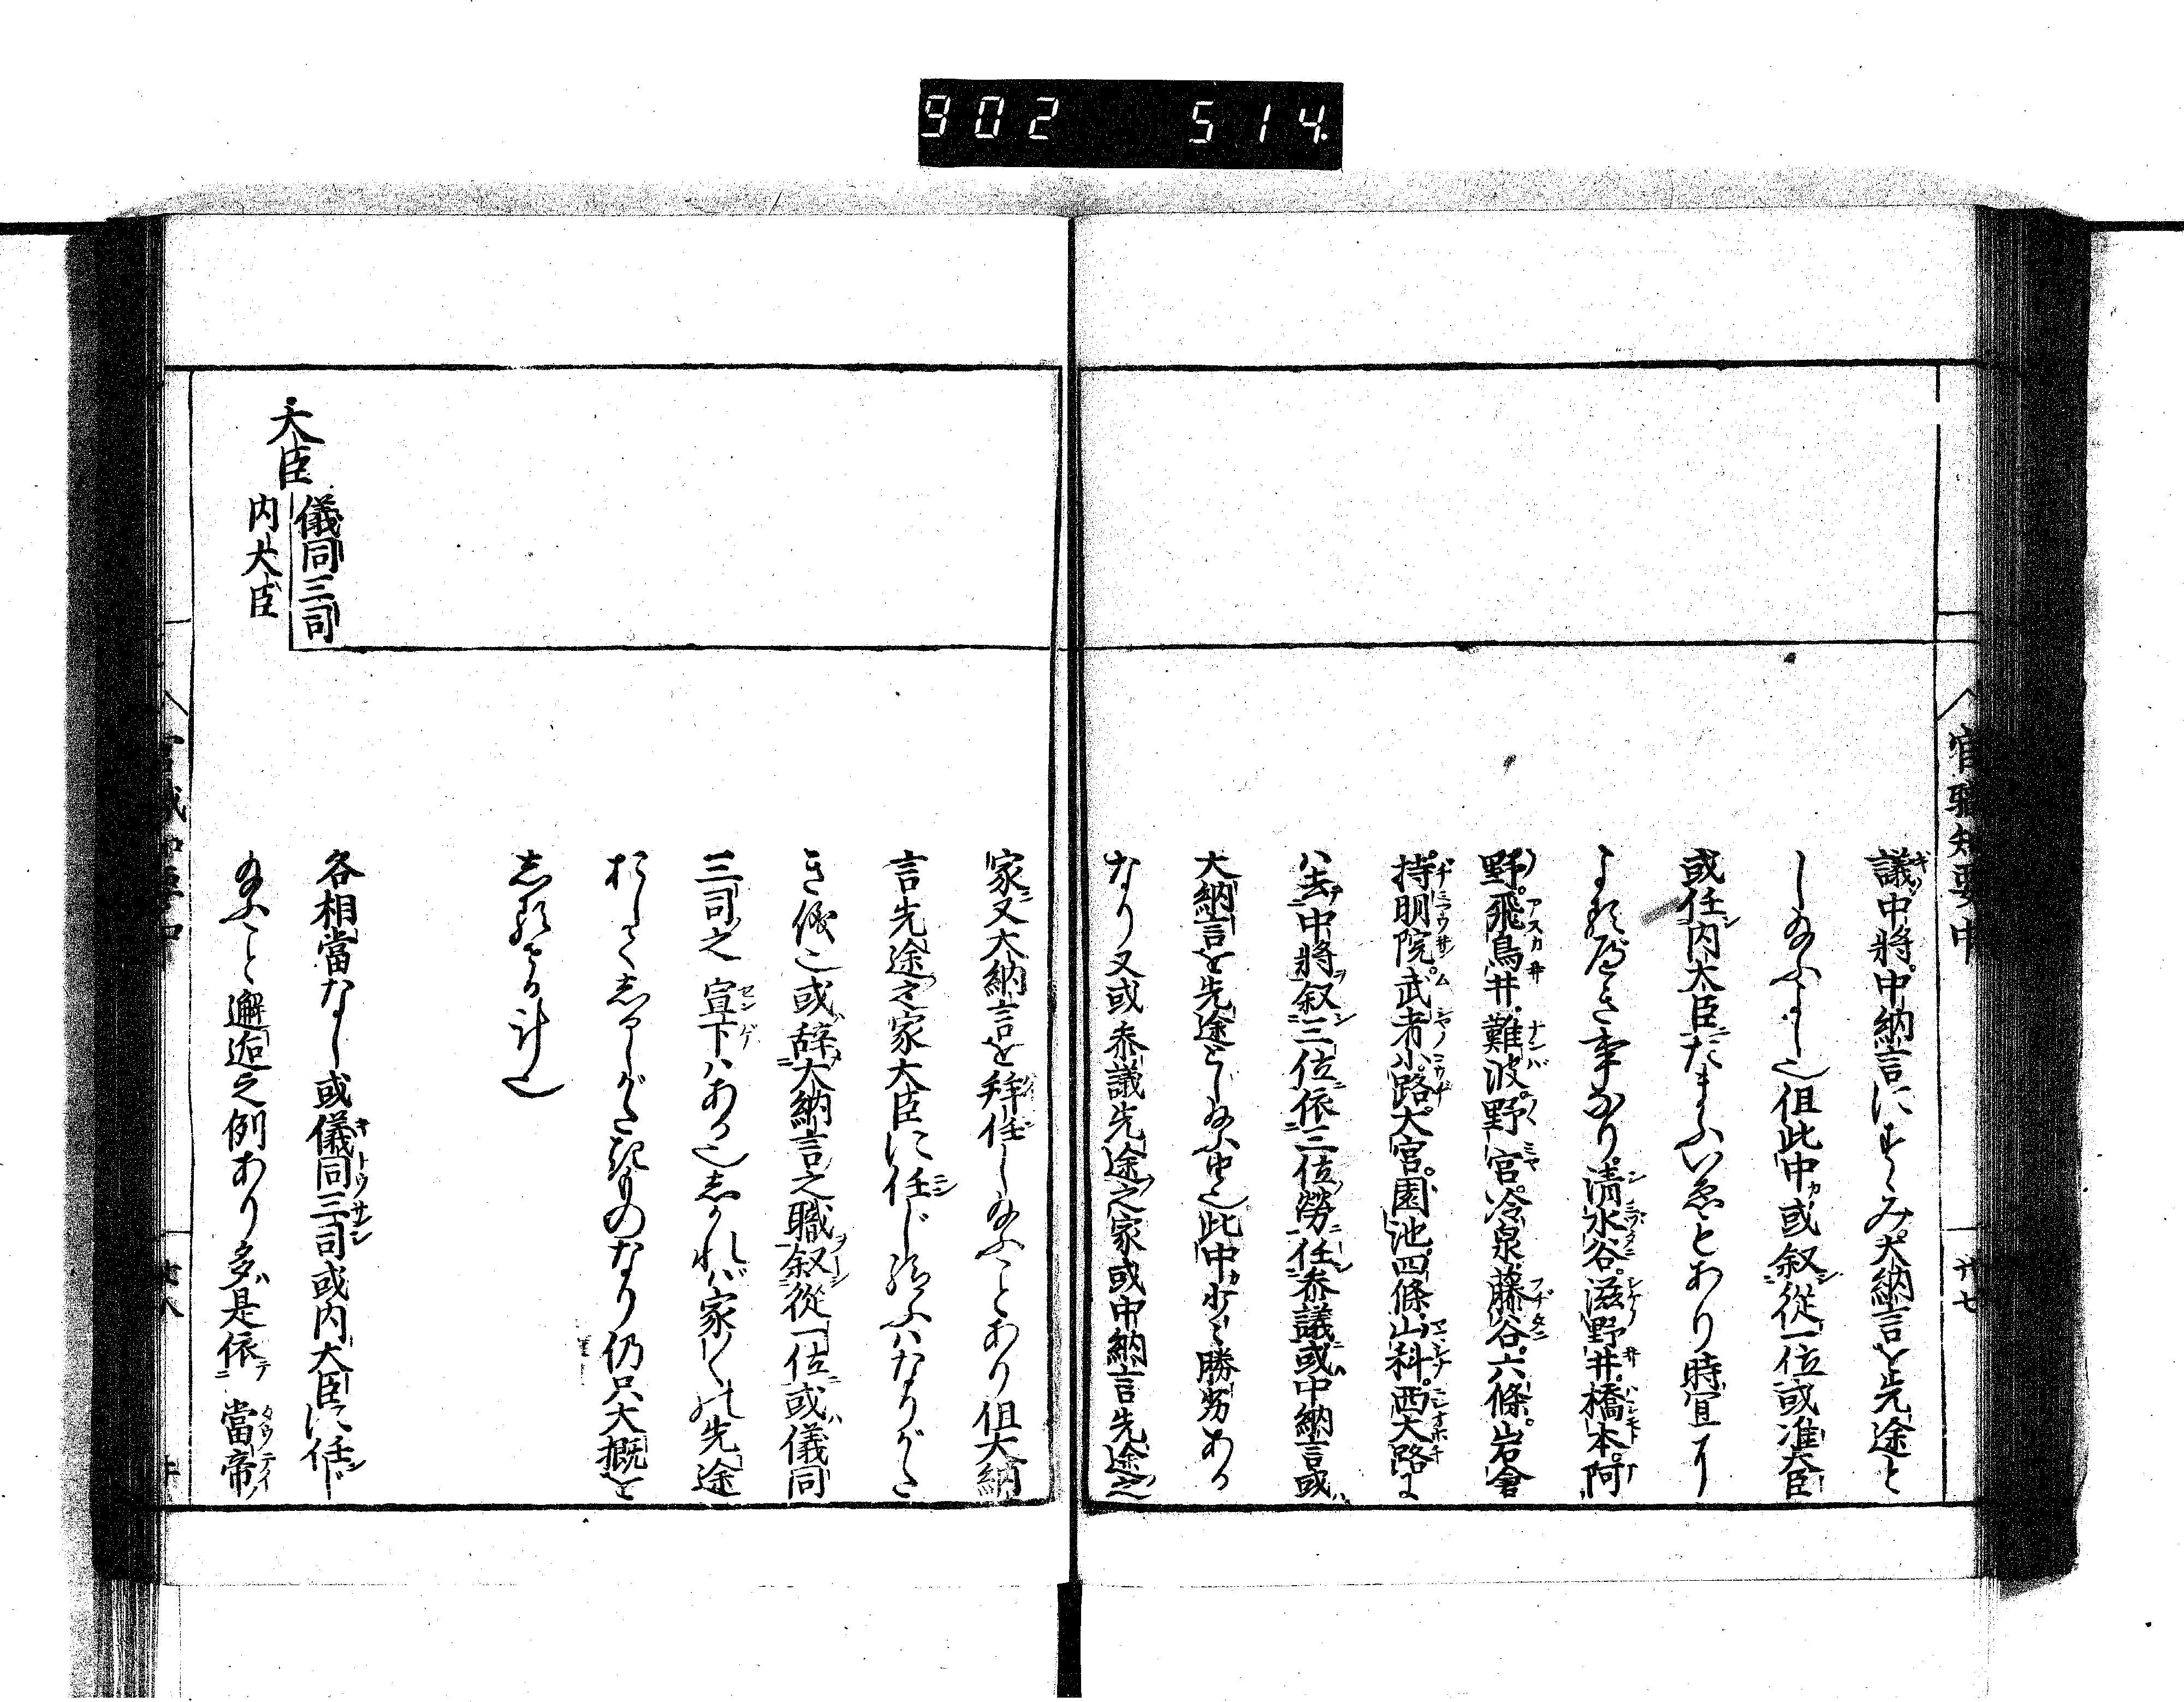 902 514
官職知要中
廿七
議中將中納言にすゝみ大納言を先途と
し給ふよし也但此中或叙從一位或准大臣
或任内大臣たまふいゑとあり時宜に
よるべき事なり清水谷滋野井橋本阿
野飛鳥井難波野宮冷泉藤谷六條岩倉
持明院武者小路大宮園池四條山科西大路は
ハ去中將叙三位依三位勞任参議或中納言或
大納言を先途とし給ふ也此中少々勝劣ある
なり又或参議先途之家或中納言先途之
家又大納言を拜任し給ふことあり但大納
言先途之家大臣に任じ給ふハなりがた
き儀也或辞大納言之職叙從一位或儀同
三司之宣下ハある也志かれバ家〳〵の先途
おしてしるしがたきものなり仍只大概を
志るせる計也
大臣
儀同三司
内大臣
各相當なし或儀同三司或内大臣に任じ
給ふこと邂逅之例あり多是依當帝